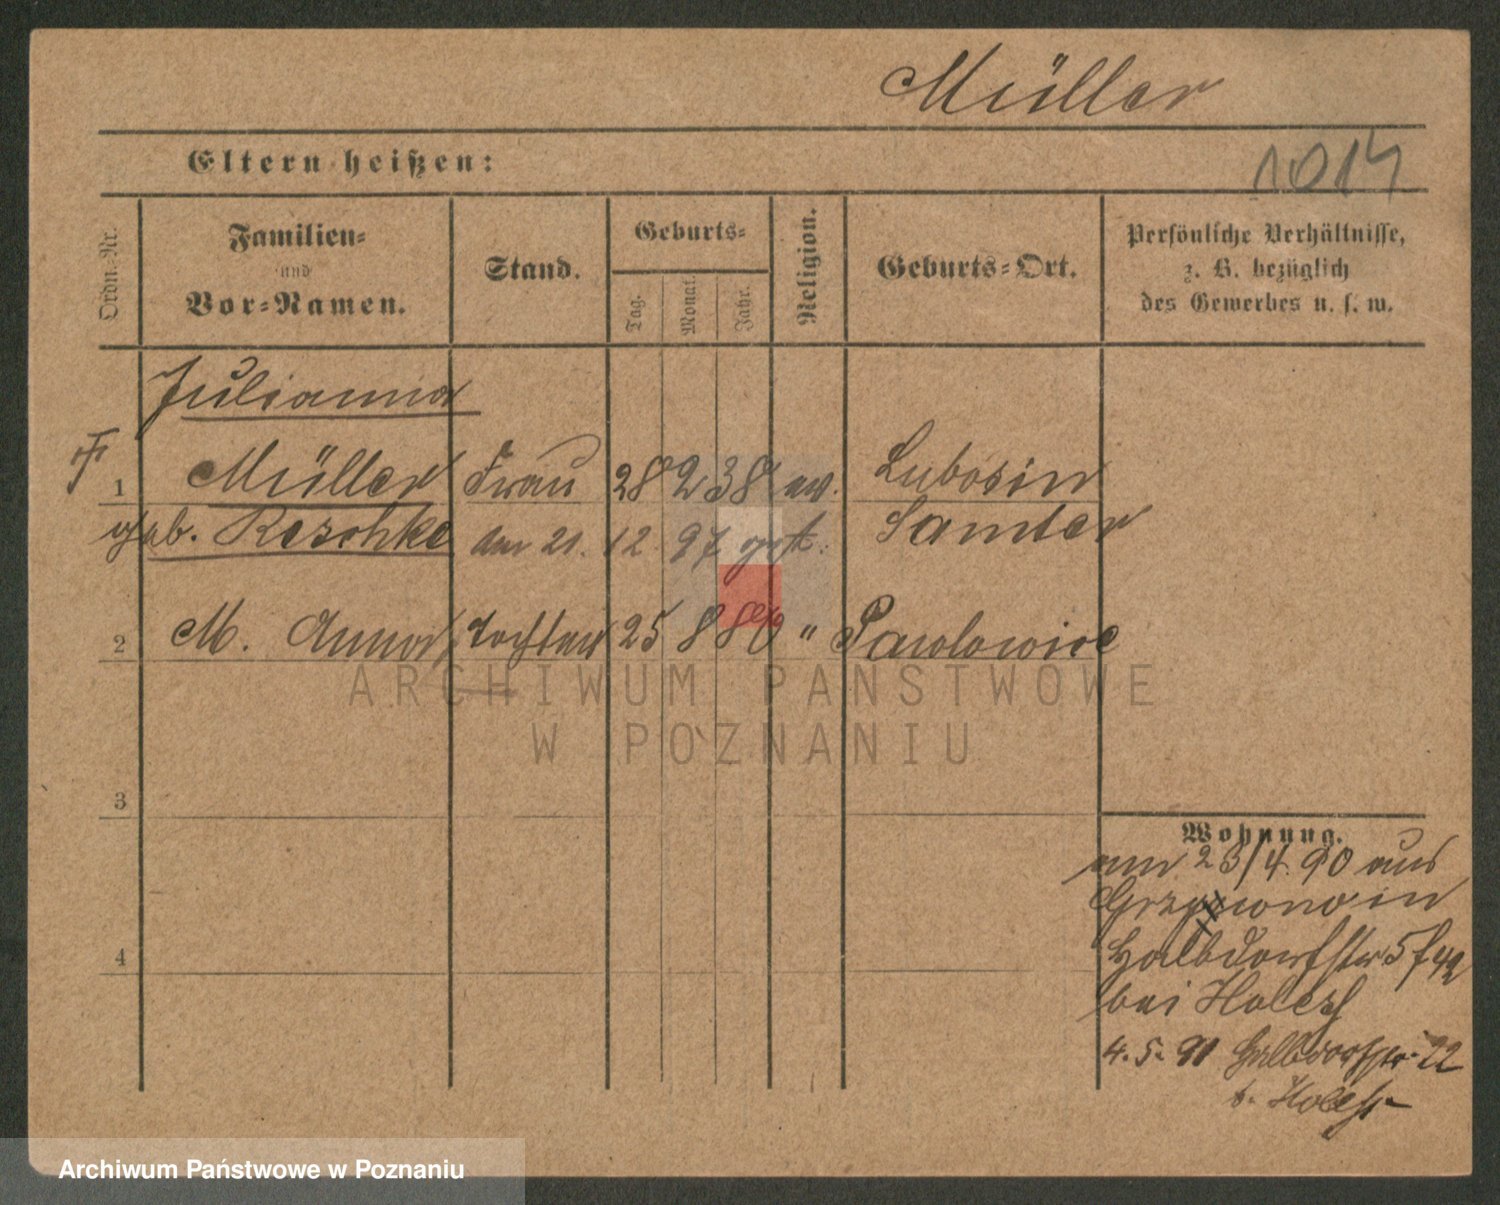 Müller
1014
Eltern heißen:
Ordn.-Nr.
Familien-
und
Vor-Namen.
Stand.
Geburts-
Tag.
Monat.
Jahr.
Religion.
Geburts-Ort.
Persönliche Verhältnisse,
z. B. bezüglich
des Gewerbes u. s. w.
Julianna
1 Müller Frau 28 2 38 ev. Lubosin
geb. Reschke am 21. 12 97 gest. Samter
2 M. Anna Tochter 25 8 80 " Pawlowice
3
4
Wohnung.
am 23/4. 90 aus
in
Halbdorfstr 5
bei
4. 5. 91 Halbdorfstr. 22
b.
ARCHIWUM PAŃSTWOWE
W POZNANIU
Archiwum Państwowe w Poznaniu